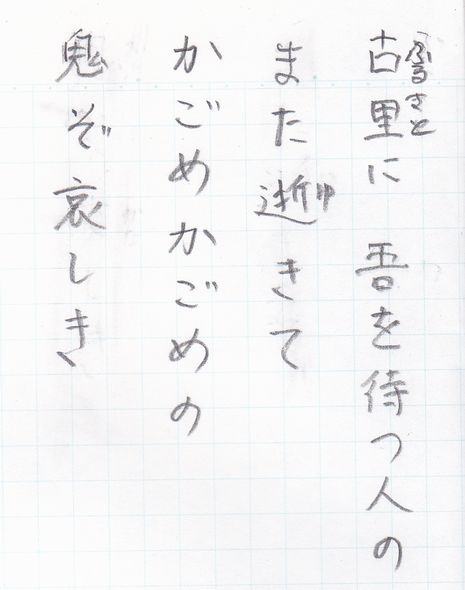 古里に 吾を待つ人の
ふるさと
また逝きて
ゆ
かごめかごめの
鬼ぞ哀しき